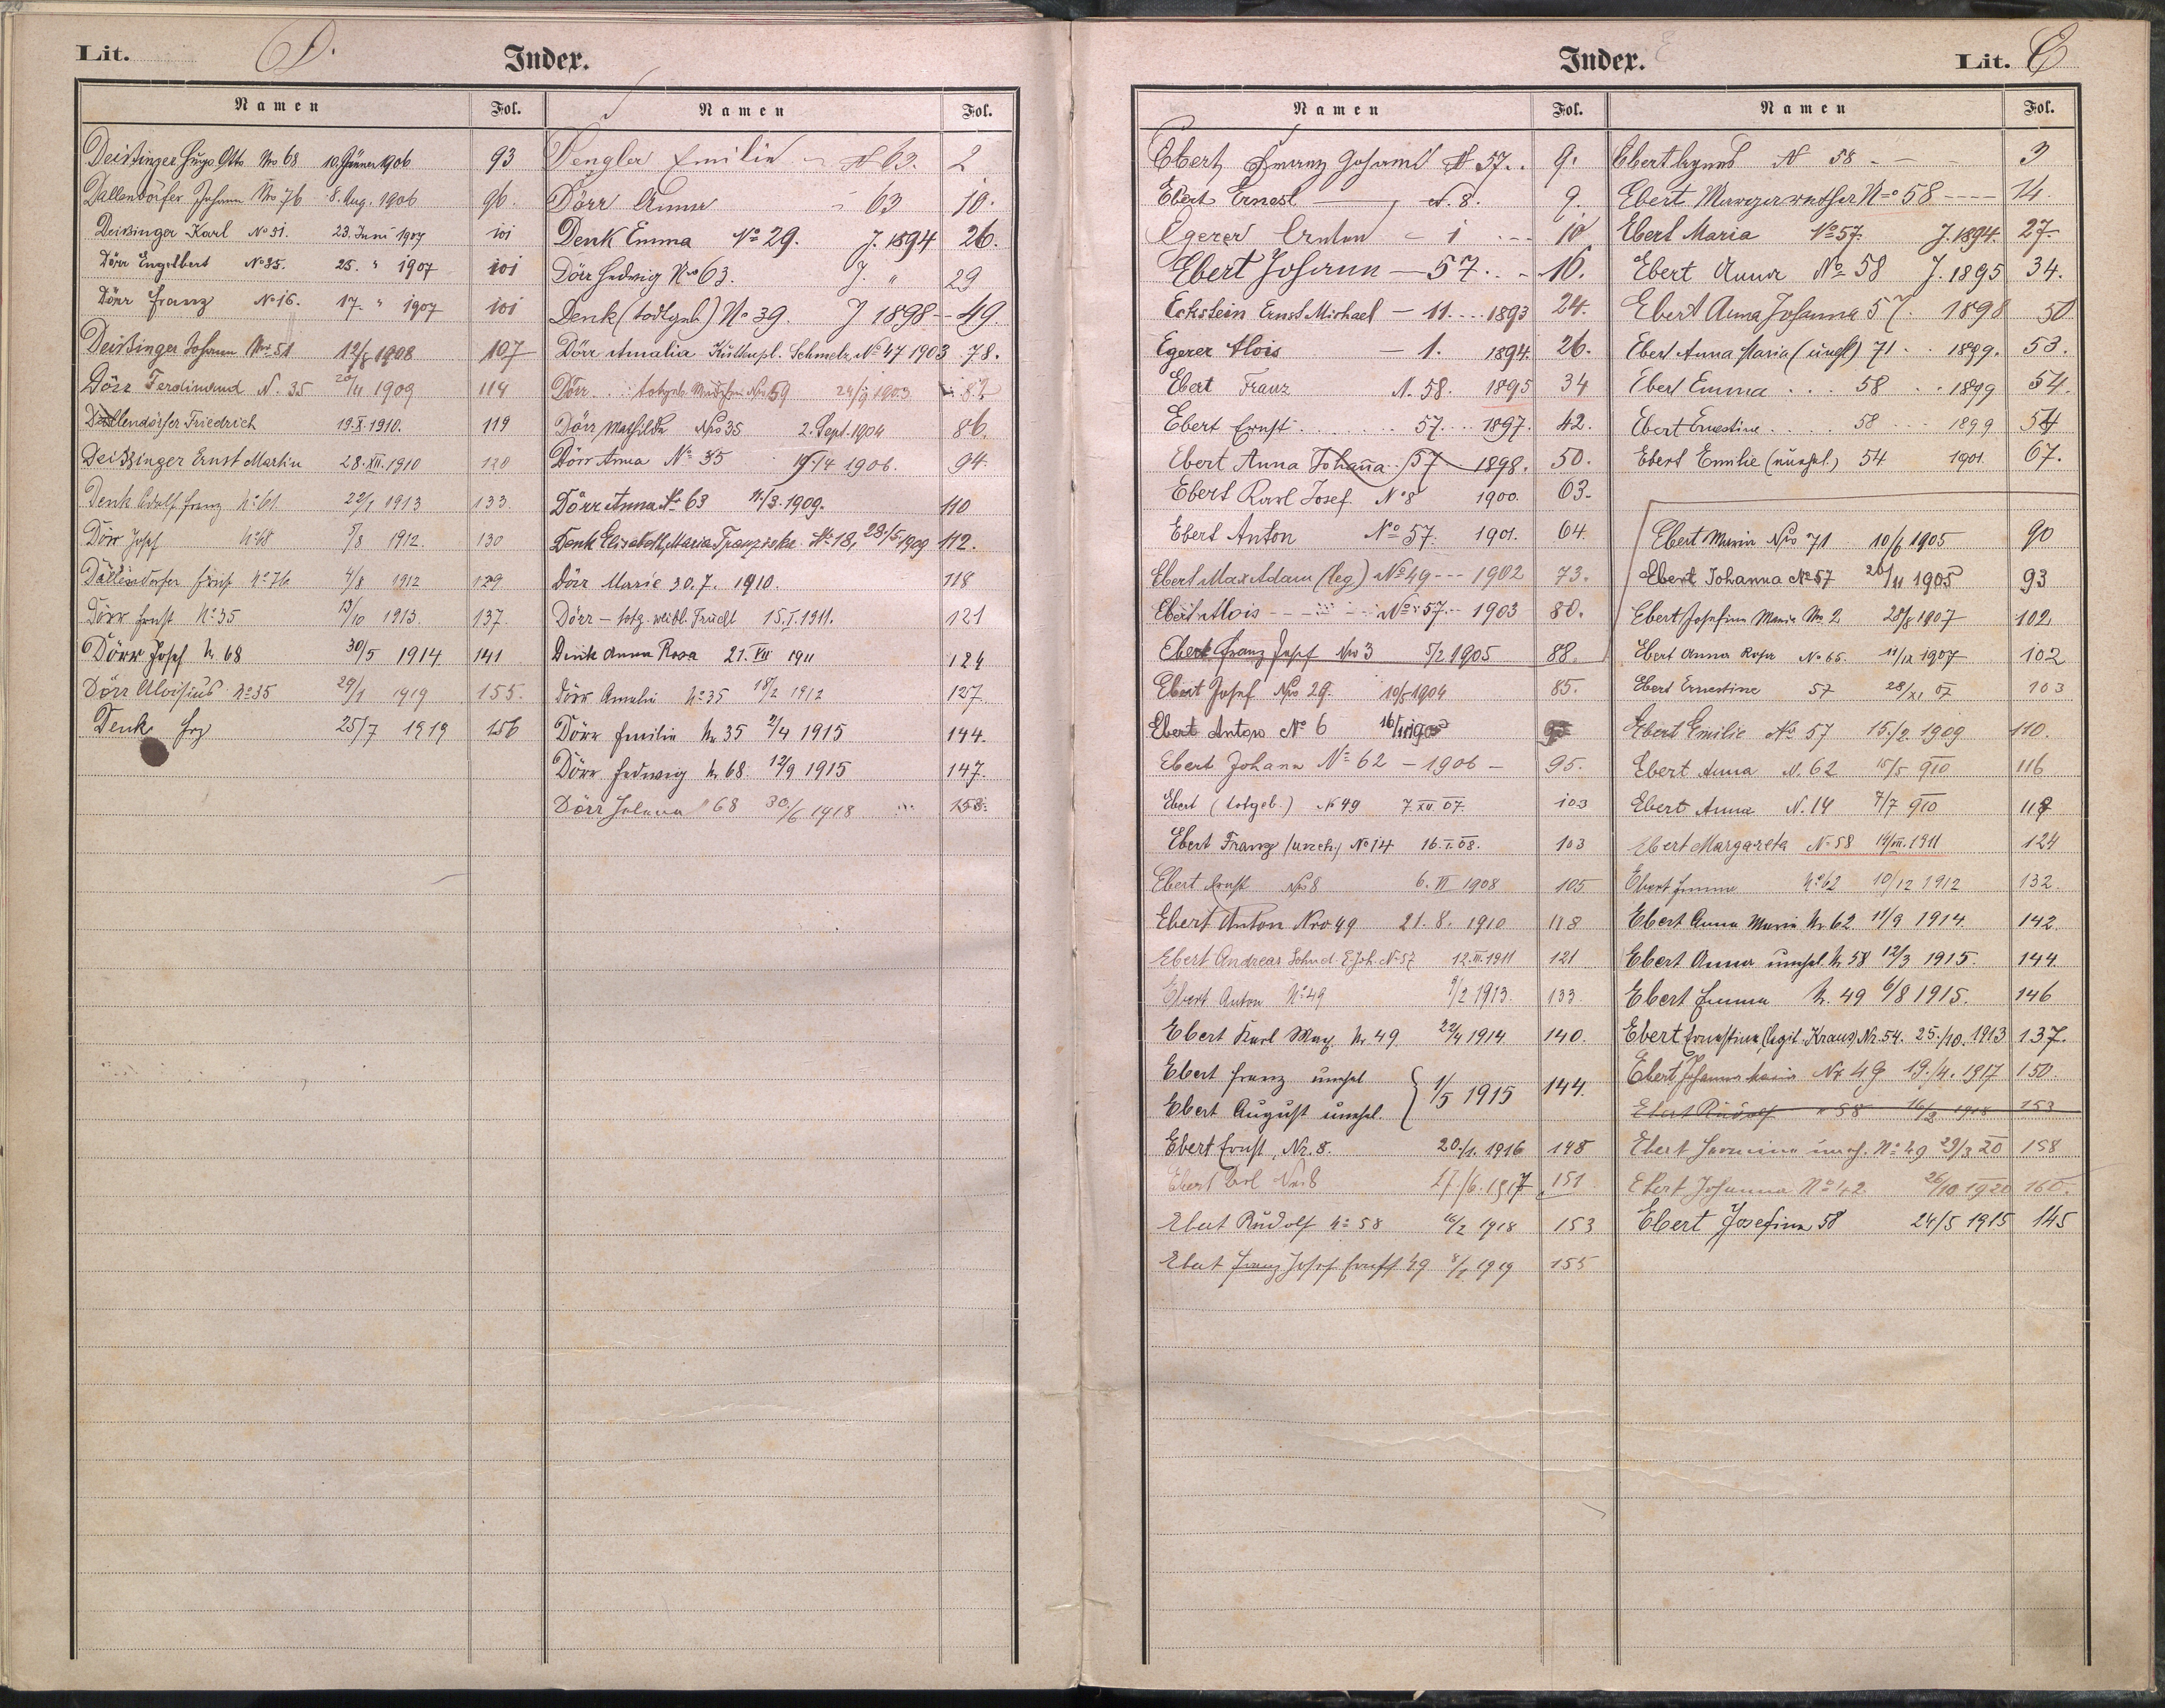 Lit. D. Index.
Namen Fol. Namen Fol.
Deißinger Hugo Otto Nro 68 10. Jänner 1906 93
Dallendörfer Johann Nro 76 8. Aug. 1906 96.
Deißinger Karl No 31. 23. Juni 1907 101
Dörr Engelbert No 35. 25. " 1907 101
Dörr Franz No 16. 17. " 1907 101
Deißinger Johann Nro 51 12/8 1908 107
Dörr Ferdinand N. 35 1909 114
Dallendörfer Friedrich 19.X.1910. 119
Deißinger Ernst Martin 28.XII.1910 120
Denk Adolf Franz No 61 22/1 1913 133
Dörr Josef No 68 5/8 1912. 130
Dallendorfer No 76 4/8 1912 129
Dörr Ernst No 35 13/10 1913. 137.
Dörr Josef N. 68 30/5 1914 141
Dörr Aloisius No 35 29/1 1919 155.
Denk Frz 25/7 1919 156
Dengler Emilie N 63. 2
Dörr Anna - 63 10.
Denk Emma No 29. J. 1894 26.
Dörr Hedwig Nro 63. J. " 29
Denk (todtgeb.) No 39. J 1898 - 49.
Dörr Amalia Schmelz No 47 1903 78.
Dörr todtgeb. Mädchen Nro 59 24/9 1903 82
Dörr Mathilde Nro 35 2. Sept. 1904 86.
Dörr Anna No 35 19/4 1906. 94.
Dörr Anna No 63 11/3. 1909. 110
Denk Elisabeth Maria Franziska No 18, 28./5. 1909 112.
Dörr Marie 30.7. 1910. 118
Dörr - totg. weibl. Frucht 15.I.1911. 121
Denk Anna Rosa 21. VII 1911 124
Dörr Amalie No 35 18/2 1912 127.
Dörr Emilie Nr 35 2/4 1915 144.
Dörr Hedwig Nr 68. 12/9 1915 147.
Dörr Helena 68 30./6 1918 153.
Index. Lit. E
Namen Fol. Namen Fol.
Ebert Franz Johann N 57. 9.
Ebert Ernest - N. 8. 9.
Egerer Anton - 1 10
Ebert Johann - 57. 16.
Eckstein Ernst Michael - 11. 1893 24.
Egerer Alois - 1. 1894. 26.
Ebert Franz N. 58. 1895 34
Ebert Ernst 57. 1897. 42.
Ebert Anna Johanna 57 1898. 50.
Ebert Karl Josef. No 8 1900. 63.
Ebert Anton No 57. 1901. 64.
Ebert Max Adam (leg) No 49 --- 1902 73.
Ebert Alois No 57. 1903 80.
Ebert Franz Josef Nro 3 5/2 1905 88.
Ebert Josef Nro 29. 10/5 1904 85.
Ebert Anton No 6
Ebert Johann No 62 - 1906 - 95.
Ebert (totgeb.) No 49 7.XII.07. 103
Ebert Franz (unehl.) No 14 16.I.08. 103
Ebert Ernst Nro 8 6. VI 1908 105
Ebert Anton Nro 49 21. 8. 1910 118
Ebert Andreas Sohn d. E. Joh. No 57 12.III.1911 121
Ebert Anton No 49 9/2 1913. 133.
Ebert Karl Max Nr. 49 22/4 1914 140.
Ebert Franz unehel
Ebert August unehel. } 1/5 1915 144.
Ebert Ernst, Nr. 8. 20./1. 1916 148
Ebert Nr 8 27./6. 1917 151
Ebert Rudolf No 58 16/2 1918 153
Ebert Franz Josef Ernst 49 1919 155
Ebert Agnes N 58 - - 3
Ebert Margarethe No 58 ---- 14.
Ebert Maria No 57. J. 1894. 27.
Ebert Anna No 58 J. 1895 34.
Ebert Anna Johanna 57. 1898 50
Ebert Anna Maria (unehl) 71 1899. 53.
Ebert Emma 58 1899 54.
Ebert Ernestine 58 1899 54
Ebert Emilie (unehel.) 54 1901. 67.
Ebert Maria Nro 71 10/6 1905 90
Ebert Johanna No 57 20/11 1905 93
Ebert Josefine Maria No 2 28/8 1907 102
Ebert Anna Rosa No 65. 11/IX 1907 102
Ebert Ernestine 57 28/XI 07 103
Ebert Emilie No 57 15./2. 1909 110.
Ebert Anna N. 62 15/5 910 116
Ebert Anna N. 14 7/7 910 117
Ebert Margareta No 58 1911 124
Ebert Emma No 62 10/12 1912 132.
Ebert Anna Maria Nr. 62. 11/9 1914. 142.
Ebert Anna unehel. Nr 58 12/3 1915. 144.
Ebert Emma Nr. 49 6/8 1915. 146
Ebert Ernestine (legit. Kraus) Nr. 54. 25./10. 1913 137.
Ebert Johanna Maria Nr. 49 19./4. 1917 150.
Ebert Rudolf " 58 16/2 1918 153
Ebert Hermine uneh. No 49 29/3 20 158
Ebert Johanna 26/10 1920 160.
Ebert Josefine 58 24/5 1915 145